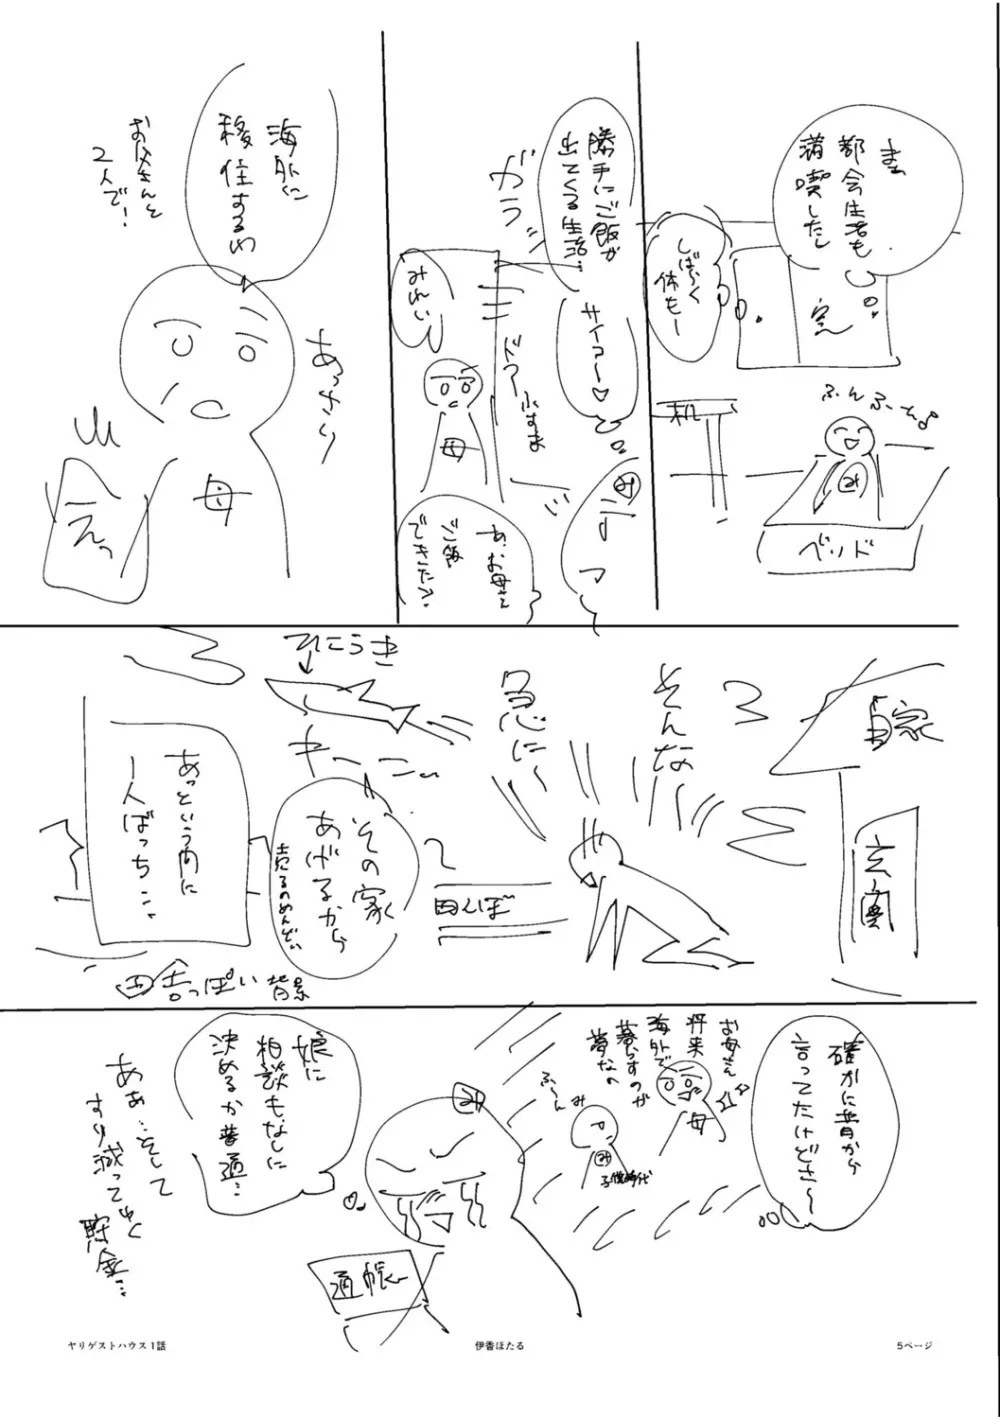 まぁ
都会生活も
満喫したし
しばらく
休もー
窓
机
ふんふーん♪
み
ベッド
勝手にご飯が
出てくる生活…
サイコー♡
ガラッ
みれい
ドアーふすま
母
み
あ、お母さん
ご飯
できた?
海外に
移住するわ
お父さんと
2人で!
あっさり
母
えっ
自家
玄関
そんな
急に〜
ひこうき
キーーン
その家
あげるから
売るのめんどい
田んぼ
あっという間に
一人ぼっち…
田舎っぽい背景
確かに昔から
言ってたけどさ〜
お母さん
将来
海外で
暮らすのが
夢なの
母
ふーん
み
み
子供時代
み
娘に
相談もなしに
決めるか普通…
通帳
あぁ…そして
すり減ってゆく
貯金…
ヤリゲストハウス1話
伊香ほたる
5ページ